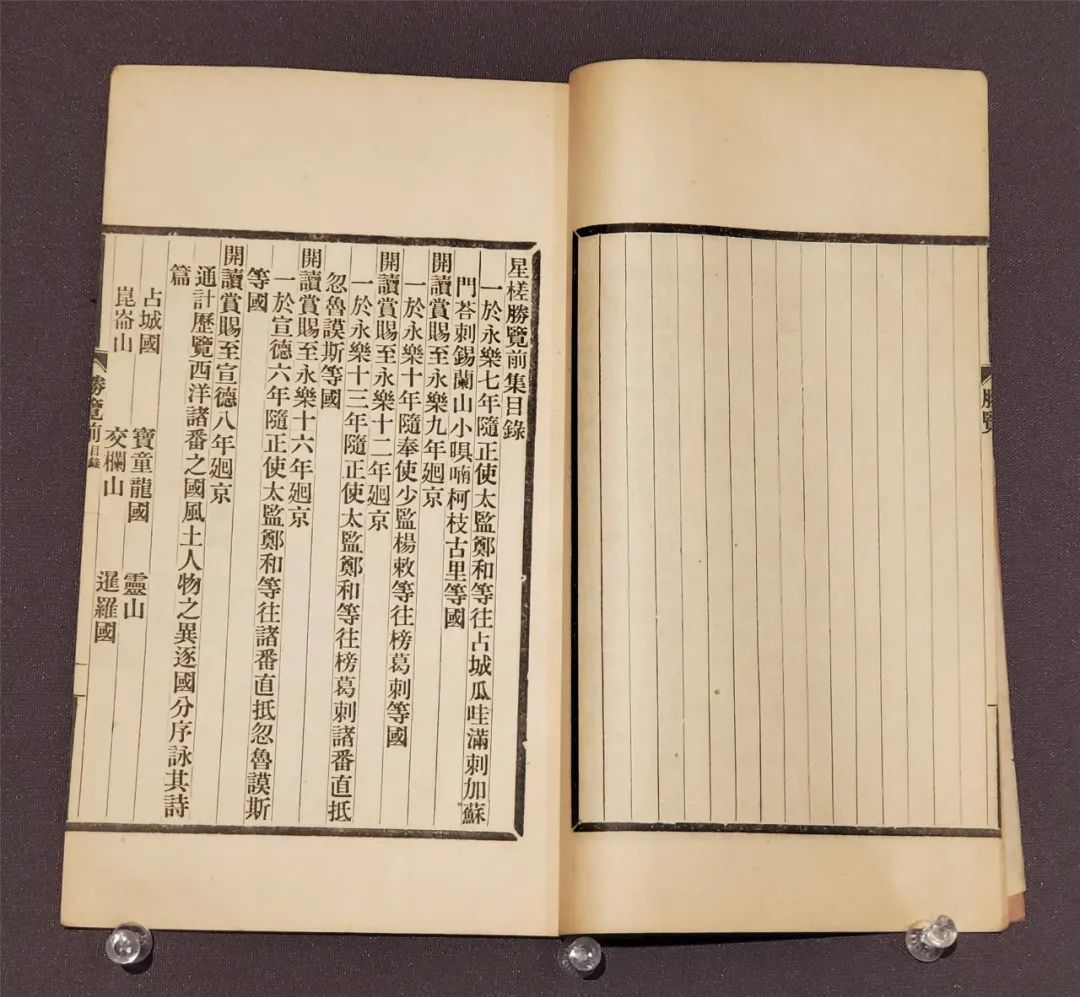 勝覽
星槎勝覽前集目錄
一於永樂七年隨正使太監鄭和等往占城瓜哇滿刺加蘇
門荅刺錫蘭山小唄喃柯枝古里等國
開讀賞賜至永樂九年廻京
一於永樂十年隨奉使少監楊敕等往榜葛刺等國
開讀賞賜至永樂十二年廻京
一於永樂十三年隨正使太監鄭和等往榜葛刺諸番直抵
忽魯謨斯等國
開讀賞賜至永樂十六年廻京
一於宣德六年隨正使太監鄭和等往諸番直抵忽魯謨斯
等國
開讀賞賜至宣德八年廻京
通計歷覽西洋諸番之國風土人物之異逐國分序詠其詩
篇
占城國 寶童龍國 靈山
崑崙山 交欄山 暹羅國
勝覽前 目錄